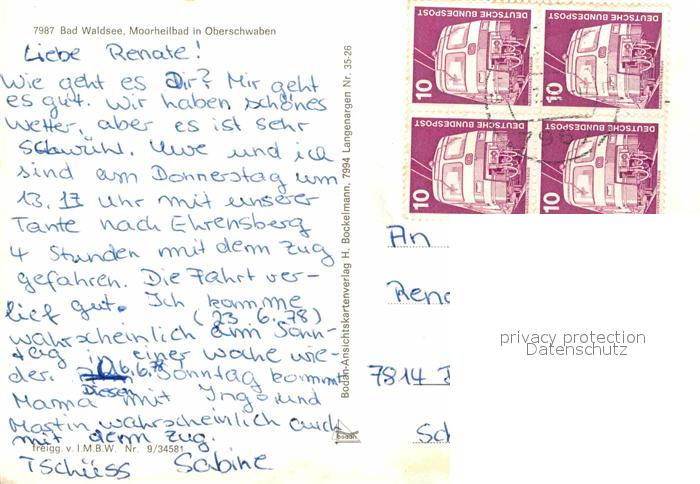 7987 Bad Waldsee, Moorheilbad in Oberschwaben
Liebe Renate!
Wie geht es Dir? Mir geht
es gut. Wir haben schönes
Wetter, aber es ist sehr
schwühl. Uwe und ich
sind am Donnerstag um
13.17 Uhr mit unserer
Tante nach Ehrensberg
4 Stunden mit dem Zug
gefahren. Die Fahrt ver-
lief gut. Ich komme
(23.6.78)
wahrscheinlich am Sonn-
tag in einer Woche wie-
der. Diesen Sonntag kommt
Mama mit Ingo und
Martin wahrscheinlich auch
mit dem Zug.
freigg. v. I.M.B.W. Nr. 9/34581
Tschüss Sabine
Bodan-Ansichtskartenverlag H. Bockelmann, 7994 Langenargen Nr. 35-26
bodan
DEUTSCHE BUNDESPOST
10
DEUTSCHE BUNDESPOST
10
DEUTSCHE BUNDESPOST
10
DEUTSCHE BUNDESPOST
10
An
Rena
privacy protection
Datenschutz
7814
Sch